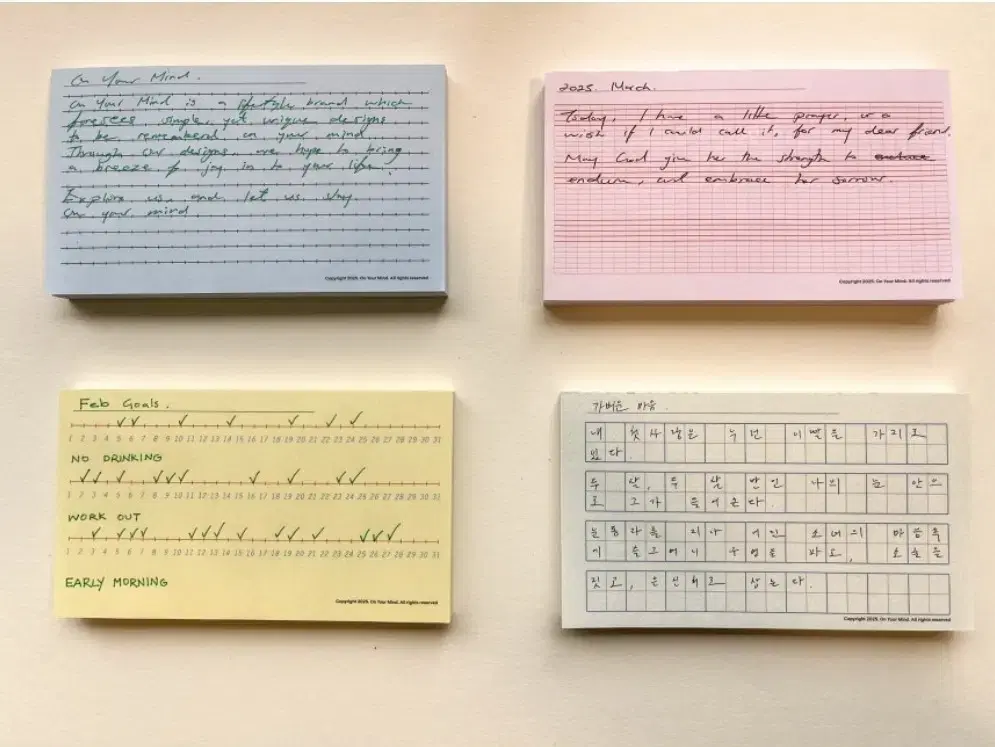 On Your Mind.
On Your Mind is a lifestyle brand which
foresees simple, yet unique designs
to be remembered in your mind.
Through our designs, we hope to bring
a breeze of joy in to your life.
Explore us, and let us stay
on your mind
Copyright 2025. On Your Mind. All rights reserved
2025. March.
Today, I have a little prayer, or a
wish if I could call it, for my dear friend.
May God give her the strength to
endure, and embrace her sorrow.
Copyright 2025. On Your Mind. All rights reserved
Feb Goals.
1 2 3 4 5 6 7 8 9 10 11 12 13 14 15 16 17 18 19 20 21 22 23 24 25 26 27 28 29 30 31
NO DRINKING
1 2 3 4 5 6 7 8 9 10 11 12 13 14 15 16 17 18 19 20 21 22 23 24 25 26 27 28 29 30 31
WORK OUT
1 2 3 4 5 6 7 8 9 10 11 12 13 14 15 16 17 18 19 20 21 22 23 24 25 26 27 28 29 30 31
EARLY MORNING
Copyright 2025. On Your Mind. All rights reserved
가벼운 마음.
내 첫사랑은 누런 이빨을 가지고
있다.
두 살, 두 살 반인 나의 눈 안으
로 그가 들어온다.
눈동자를 지나 여린 소녀의 마음속
에 슬그머니 구멍을 파고,
짓고, 은신처로 삼는다.
Copyright 2025. On Your Mind. All rights reserved